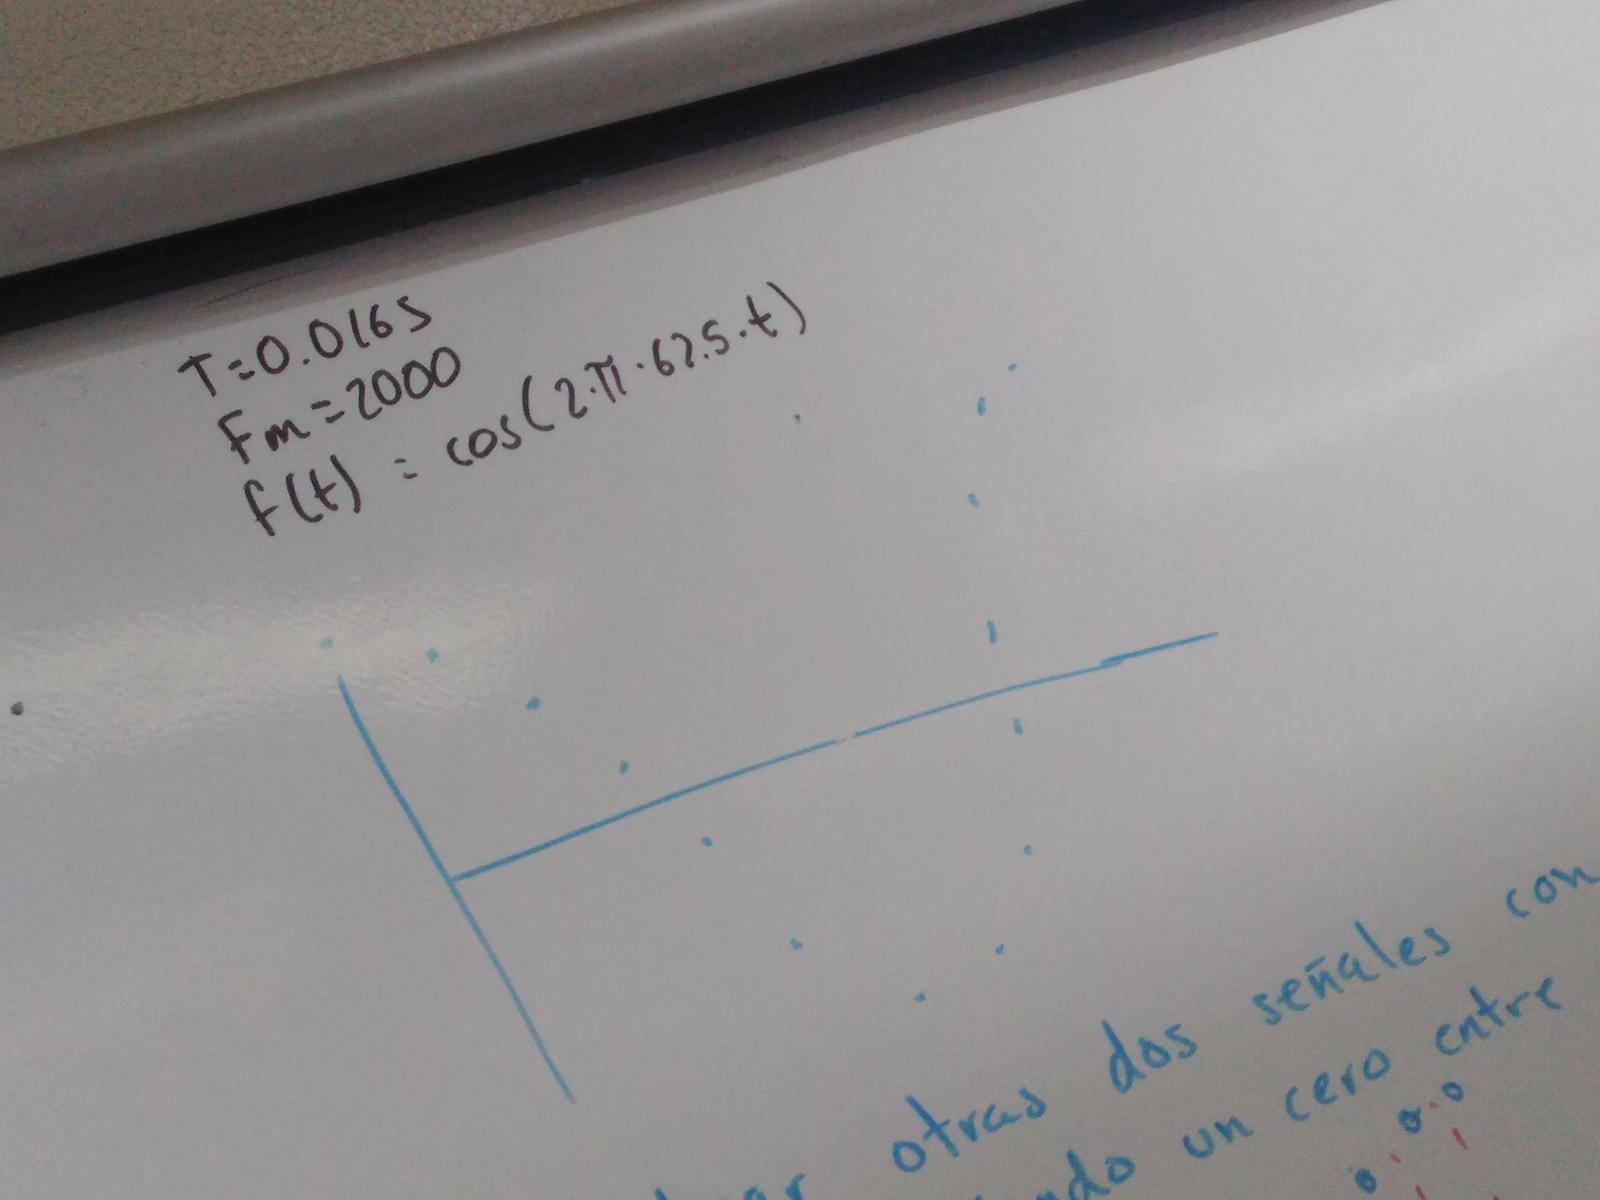 T=0.016s
Fm=2000
f(t) = cos(2·π·62.5·t)
otras dos señales con
un cero entre